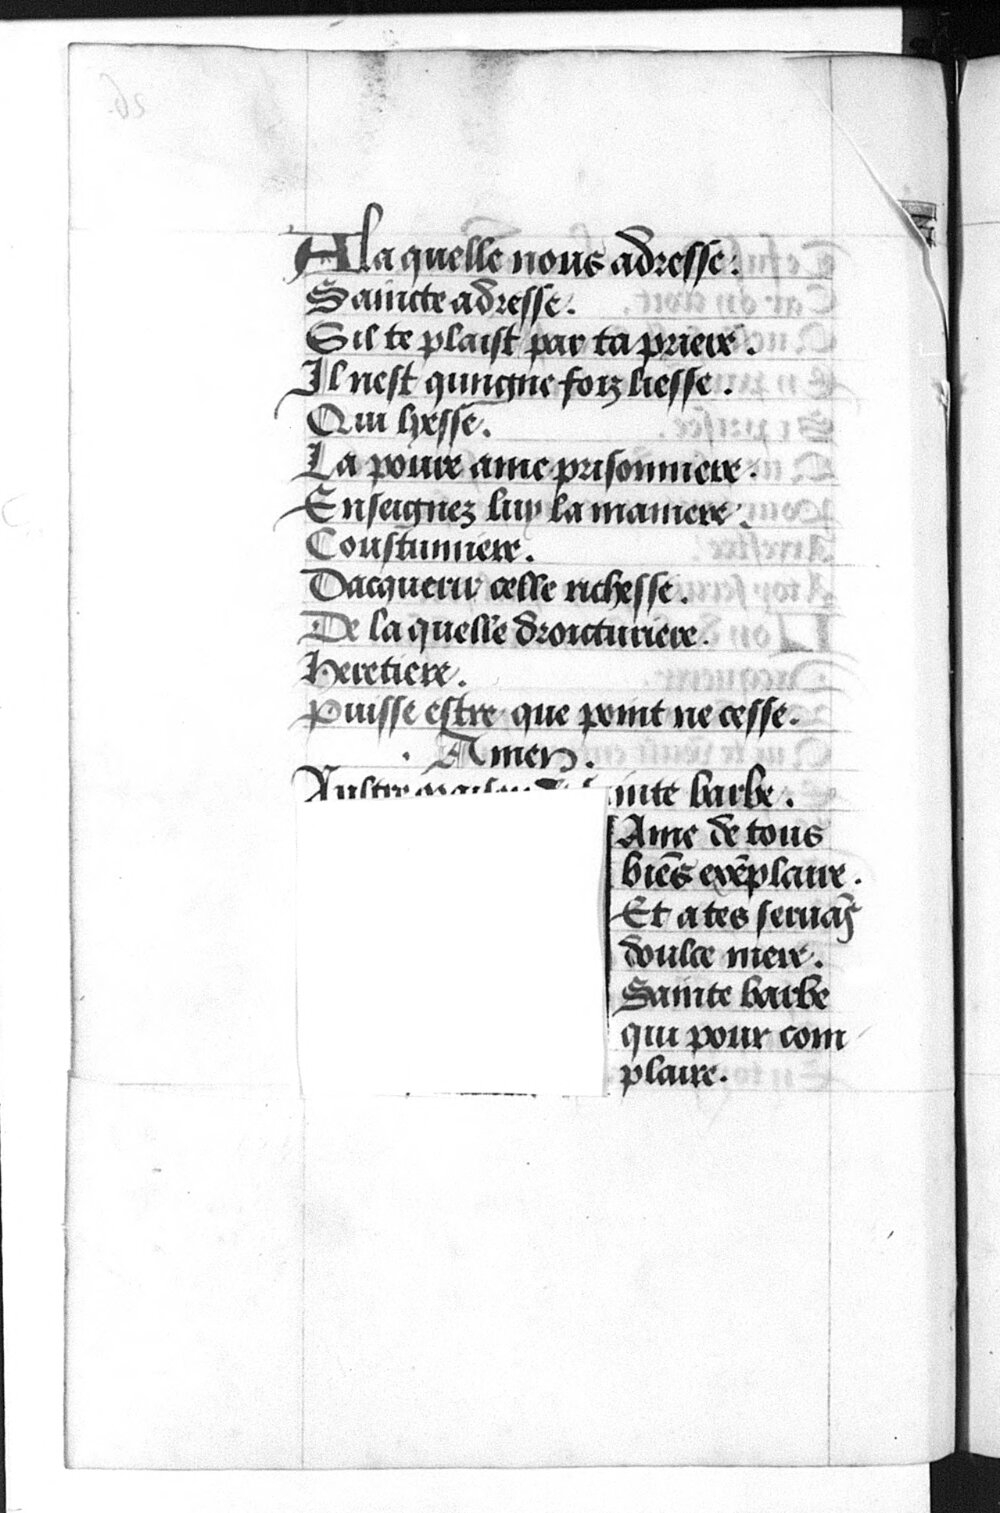 A la quelle nous adresse.
Saincte adresse.
Sil te plaist par ta priere.
Il nest quingne forz liesse.
Qui lyesse.
La poure ame prisonniere.
Enseignez luy la maniere.
Coustumiere.
Dacquerir celle richesse.
De la quelle droicturiere.
Heretiere.
Puisse estre que point ne cesse.
Amen.
Aultre oraison de sainte barbe.
Ame de tous
biēs exēplaire.
Et a tes seruās
doulce mere.
Sainte barbe
qui pour com
plaire.